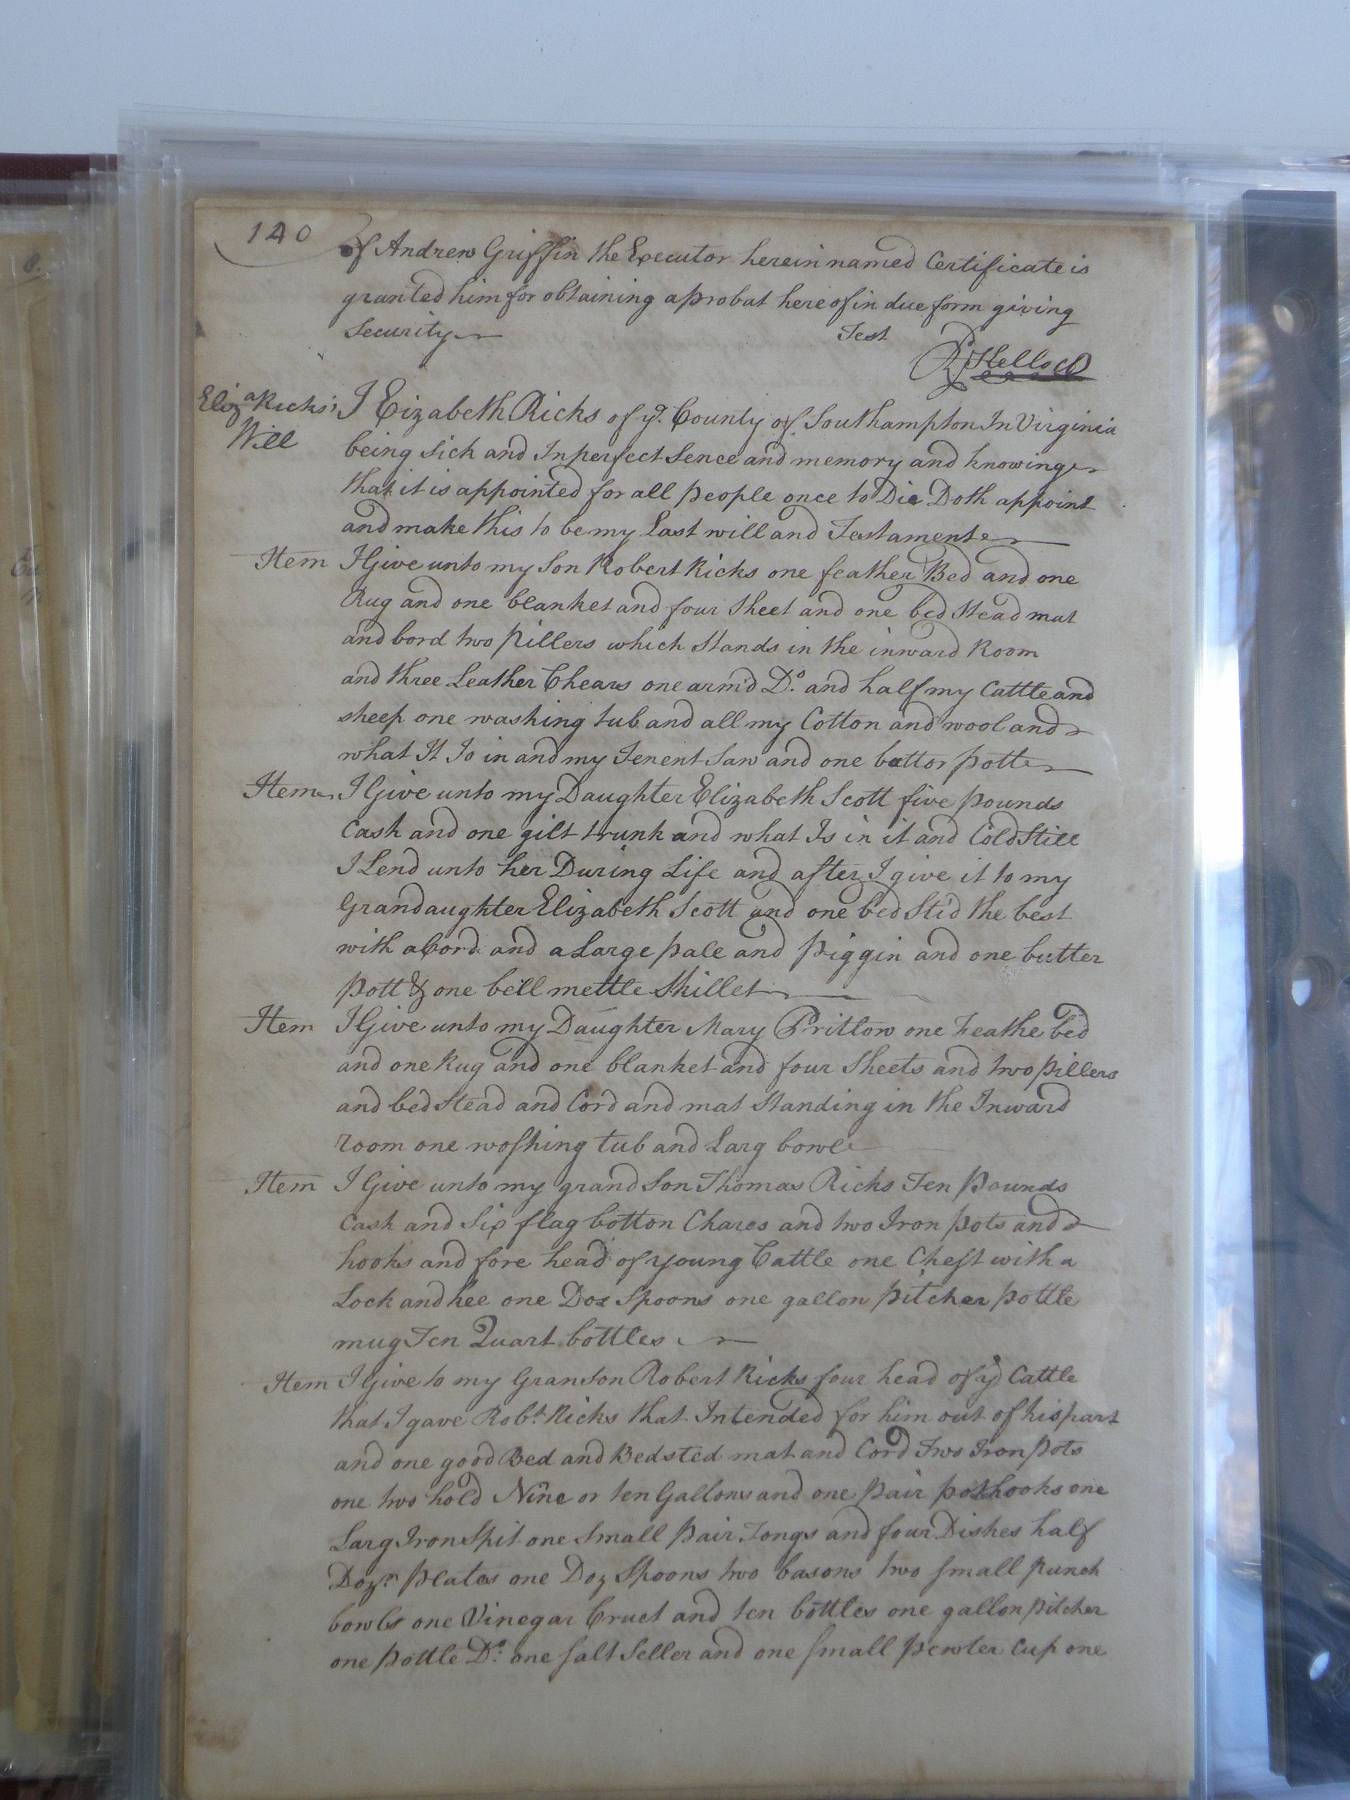 140
of Andrew Griffin the Executor herein named Certificate is
granted him for obtaining a probat hereof in due form giving
Security
Test
Eliza Ricks's
Will
I Eizabeth Ricks of ye. County of Southampton In Virginia
being Sick and In perfect Sence and memory and knowing
that it is appointed for all people once to Die Doth appoint
and make this to be my Last will and Testament
Item I Give unto my Son Robert Ricks one feather Bed and one
Rug and one blanket and four Sheet and one bed Stead mat
and bord two pillers which Stands in the inward Room
and three Leather Chears one arm'd Do. and half my Cattle and
sheep one washing tub and all my Cotton and wool and
what It Is in and my Tenent Saw and one buttor pott
Item I Give unto my Daughter Elizabeth Scott five pounds
Cash and one gilt trunk and what Is in it and Cold Still
I Lend unto her During Life and after I give it to my
Grandaughter Elizabeth Scott and one bed Sti'd the best
with a Cord and a Large pale and piggin and one butter
pott & one bell mettle Skillet
Item I Give unto my Daughter Mary Pritlow one Feathe bed
and one Rug and one blanket and four Sheets and two pillers
and bed Stead and Cord and mat Standing in the Inward
room one woshing tub and Larg bowl
Item I Give unto my grand Son Thomas Ricks Ten Pounds
Cash and Six flag botton Chares and two Iron pots and
hooks and fore head of young Cattle one Chest with a
Lock and kee one Doz Spoons one gallon pitcher pottle
mug Ten Quart bottles
Item I Give to my Granson Robert Ricks four head of ye Cattle
that I gave Robt. Ricks that Intended for him out of his part
and one good Bed and Bedsted mat and Cord Two Iron pots
one two hold Nine or ten Gallons and one pair pothooks one
Larg Iron Spit one Small pair Tongs and four Dishes half
Dozn plates one Doz Spoons two basons two small punch
bowls one Vinegar Cruet and ten bottles one gallon pitcher
one pottle Do. one salt Seller and one small pewter cup one